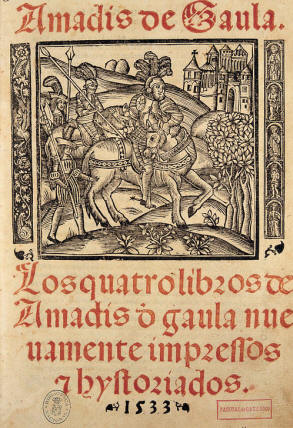 Amadis de Gaula.
Los quatro libros de
Amadis ƌ gaula nue
uamente impressos
⁊ hystoriados.
1533